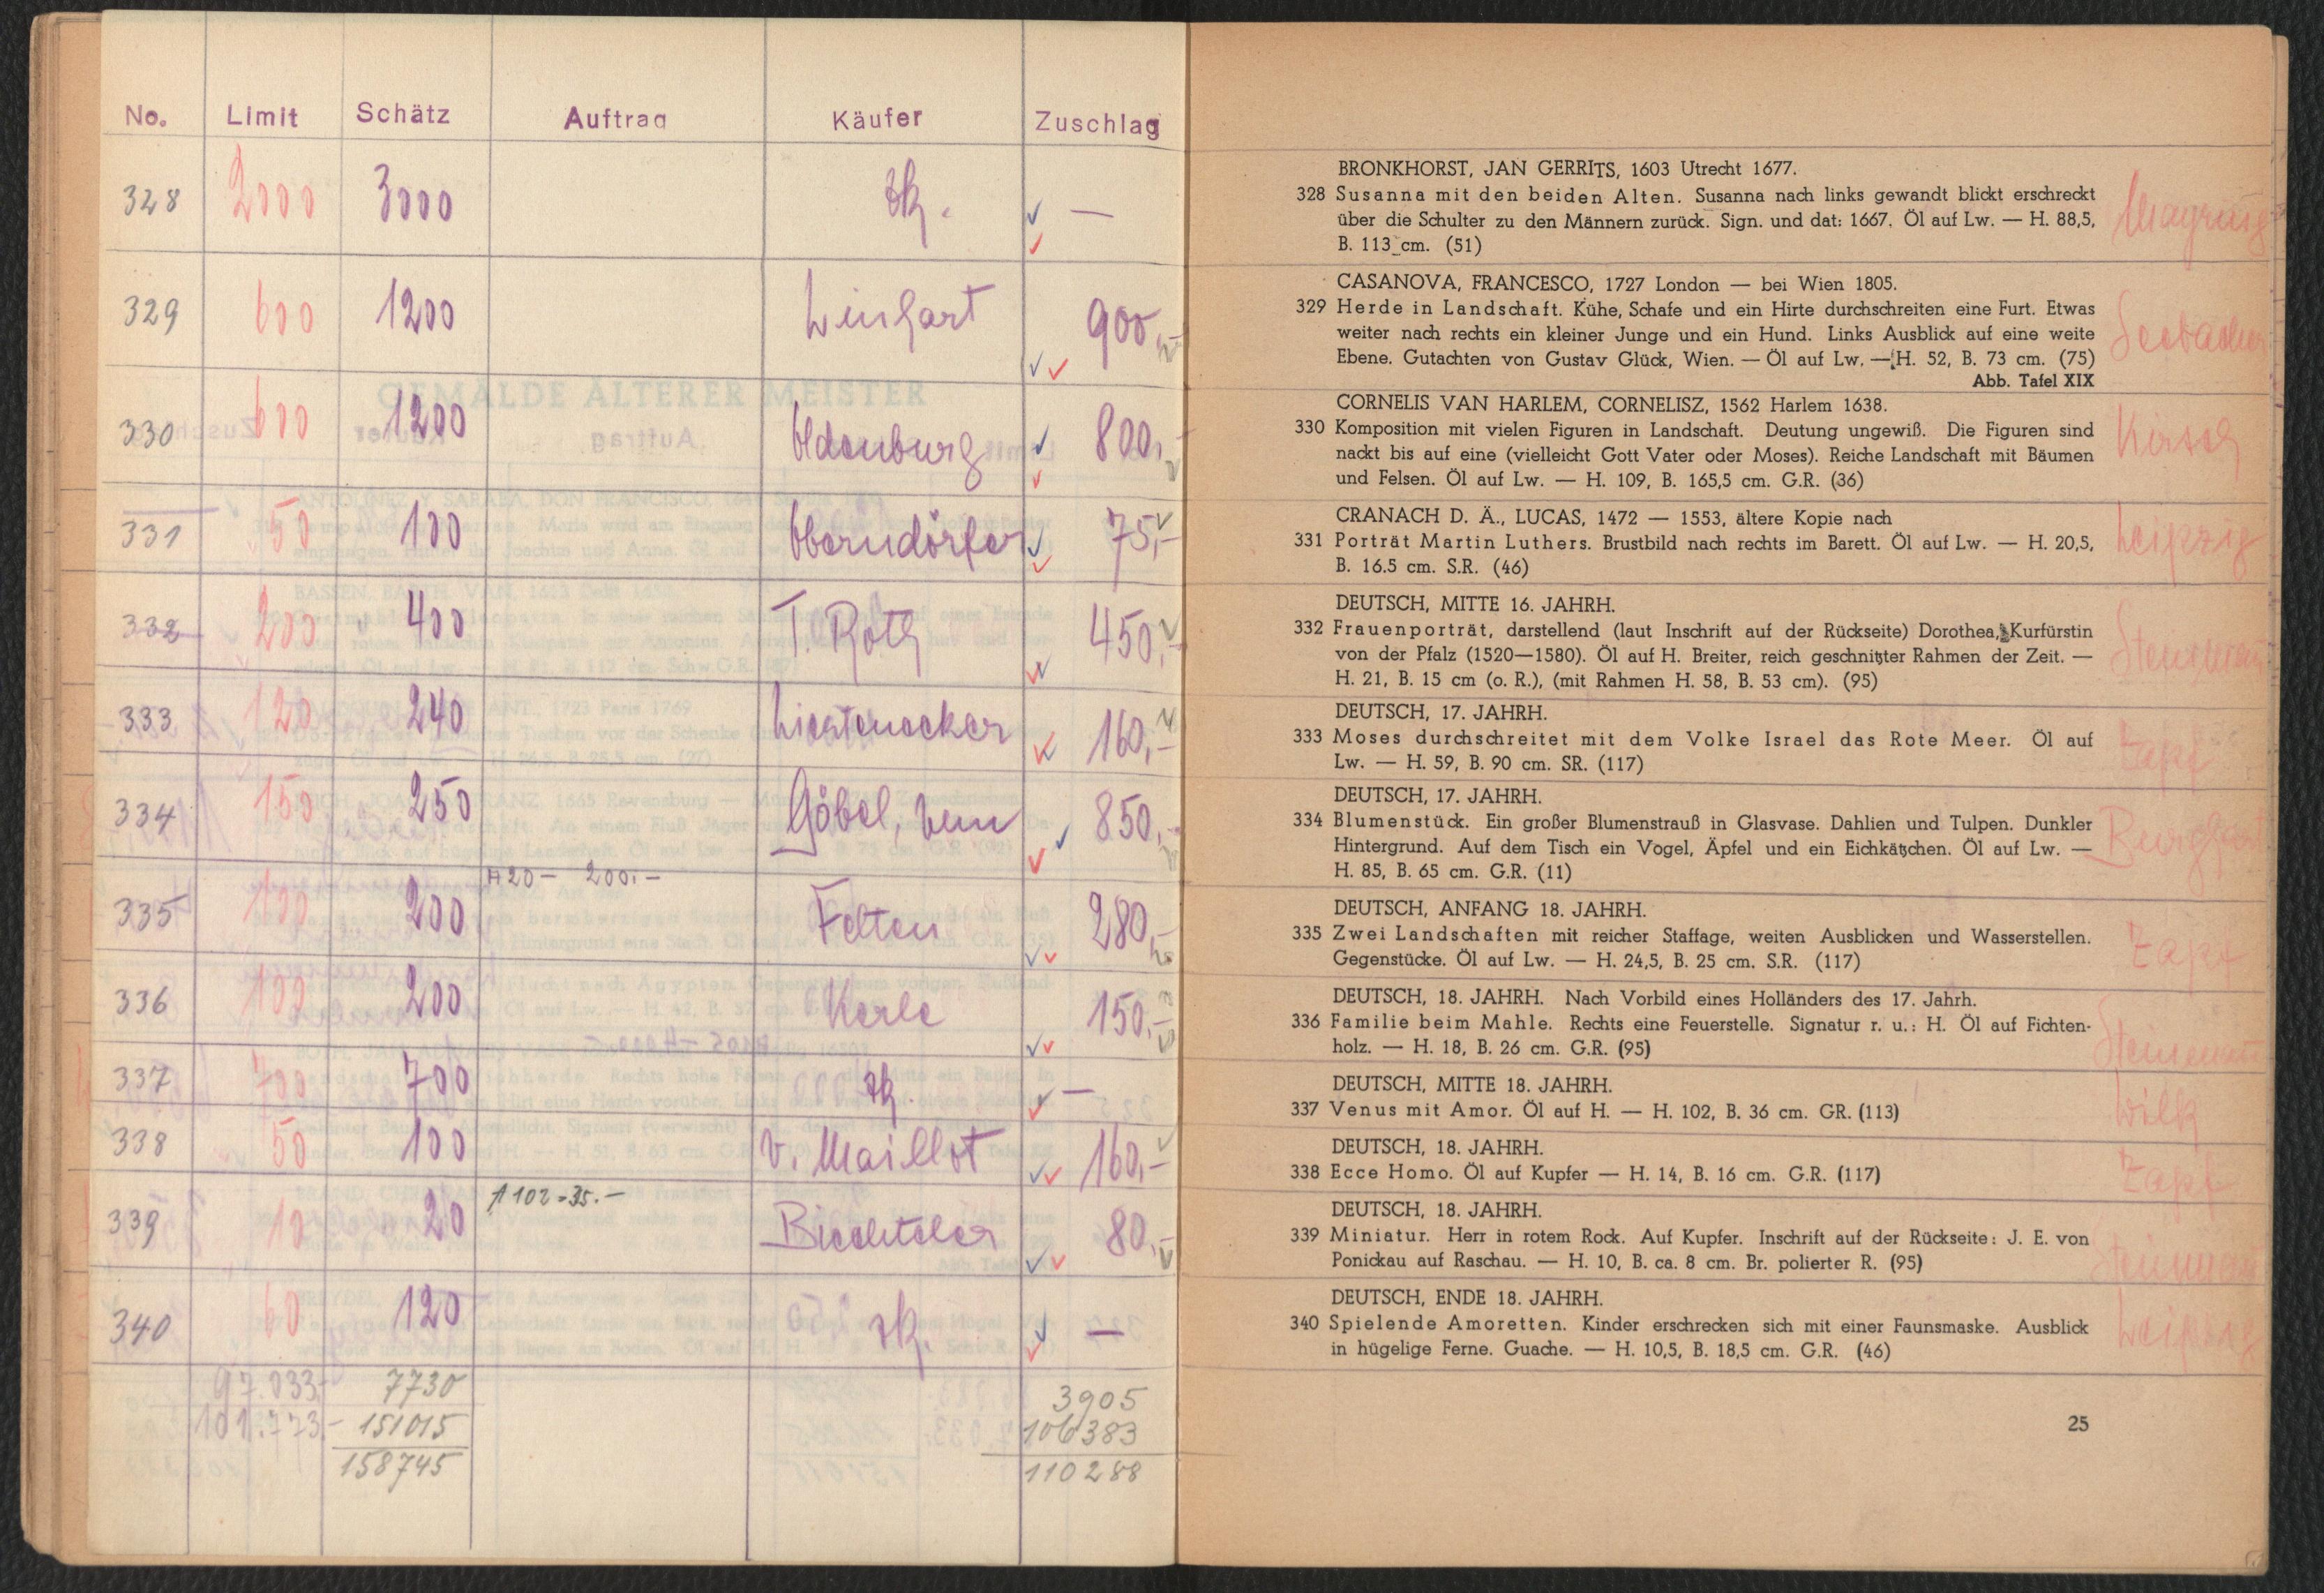 No. Limit Schätz Auftrag Käufer Zuschlag
328 2000 3000 zk. —
329 600 1200 900,-
330 600 1200 Oldenburg 800,-
331 50 100 Oberndörfer 75,-
332 200 400 T. Roth 450,-
333 120 240 160,-
334 150 250 Göbel, 850,-
335 100 200 A 20 - 200.- Felten 280,-
336 100 200 Kerle 150,-
337 700 700 zk. —
338 50 100 v. Maillot 160,-
339 10 20 A 102 = 35.- Biechteler 80,-
340 60 120 zk. —
97.033,- 7730 3905
101.773.- 151015 106383
158745 110288
GEMÄLDE ÄLTERER MEISTER
BRONKHORST, JAN GERRITS, 1603 Utrecht 1677.
328 Susanna mit den beiden Alten. Susanna nach links gewandt blickt erschreckt
über die Schulter zu den Männern zurück. Sign. und dat: 1667. Öl auf Lw. — H. 88,5,
B. 113 cm. (51)
CASANOVA, FRANCESCO, 1727 London — bei Wien 1805.
329 Herde in Landschaft. Kühe, Schafe und ein Hirte durchschreiten eine Furt. Etwas
weiter nach rechts ein kleiner Junge und ein Hund. Links Ausblick auf eine weite
Ebene. Gutachten von Gustav Glück, Wien. — Öl auf Lw. — H. 52, B. 73 cm. (75)
Abb. Tafel XIX
Seebacher
CORNELIS VAN HARLEM, CORNELISZ, 1562 Harlem 1638.
330 Komposition mit vielen Figuren in Landschaft. Deutung ungewiß. Die Figuren sind
nackt bis auf eine (vielleicht Gott Vater oder Moses). Reiche Landschaft mit Bäumen
und Felsen. Öl auf Lw. — H. 109, B. 165,5 cm. G.R. (36)
Kirsch
CRANACH D. Ä., LUCAS, 1472 — 1553, ältere Kopie nach
331 Porträt Martin Luthers. Brustbild nach rechts im Barett. Öl auf Lw. — H. 20,5,
B. 16.5 cm. S.R. (46)
Leipzig
DEUTSCH, MITTE 16. JAHRH.
332 Frauenporträt, darstellend (laut Inschrift auf der Rückseite) Dorothea, Kurfürstin
von der Pfalz (1520—1580). Öl auf H. Breiter, reich geschnitzter Rahmen der Zeit. —
H. 21, B. 15 cm (o. R.), (mit Rahmen H. 58, B. 53 cm). (95)
DEUTSCH, 17. JAHRH.
333 Moses durchschreitet mit dem Volke Israel das Rote Meer. Öl auf
Lw. — H. 59, B. 90 cm. SR. (117)
Zapf
DEUTSCH, 17. JAHRH.
334 Blumenstück. Ein großer Blumenstrauß in Glasvase. Dahlien und Tulpen. Dunkler
Hintergrund. Auf dem Tisch ein Vogel, Äpfel und ein Eichkätzchen. Öl auf Lw. —
H. 85, B. 65 cm. G.R. (11)
DEUTSCH, ANFANG 18. JAHRH.
335 Zwei Landschaften mit reicher Staffage, weiten Ausblicken und Wasserstellen.
Gegenstücke. Öl auf Lw. — H. 24,5, B. 25 cm. S.R. (117)
Zapf
DEUTSCH, 18. JAHRH. Nach Vorbild eines Holländers des 17. Jahrh.
336 Familie beim Mahle. Rechts eine Feuerstelle. Signatur r. u.: H. Öl auf Fichten-
holz. — H. 18, B. 26 cm. G.R. (95)
DEUTSCH, MITTE 18. JAHRH.
337 Venus mit Amor. Öl auf H. — H. 102, B. 36 cm. GR. (113)
Wilk
DEUTSCH, 18. JAHRH.
338 Ecce Homo. Öl auf Kupfer — H. 14, B. 16 cm. G.R. (117)
Zapf
DEUTSCH, 18. JAHRH.
339 Miniatur. Herr in rotem Rock. Auf Kupfer. Inschrift auf der Rückseite: J. E. von
Ponickau auf Raschau. — H. 10, B. ca. 8 cm. Br. polierter R. (95)
DEUTSCH, ENDE 18. JAHRH.
340 Spielende Amoretten. Kinder erschrecken sich mit einer Faunsmaske. Ausblick
in hügelige Ferne. Guache. — H. 10,5, B. 18,5 cm. G.R. (46)
Leipzig
25